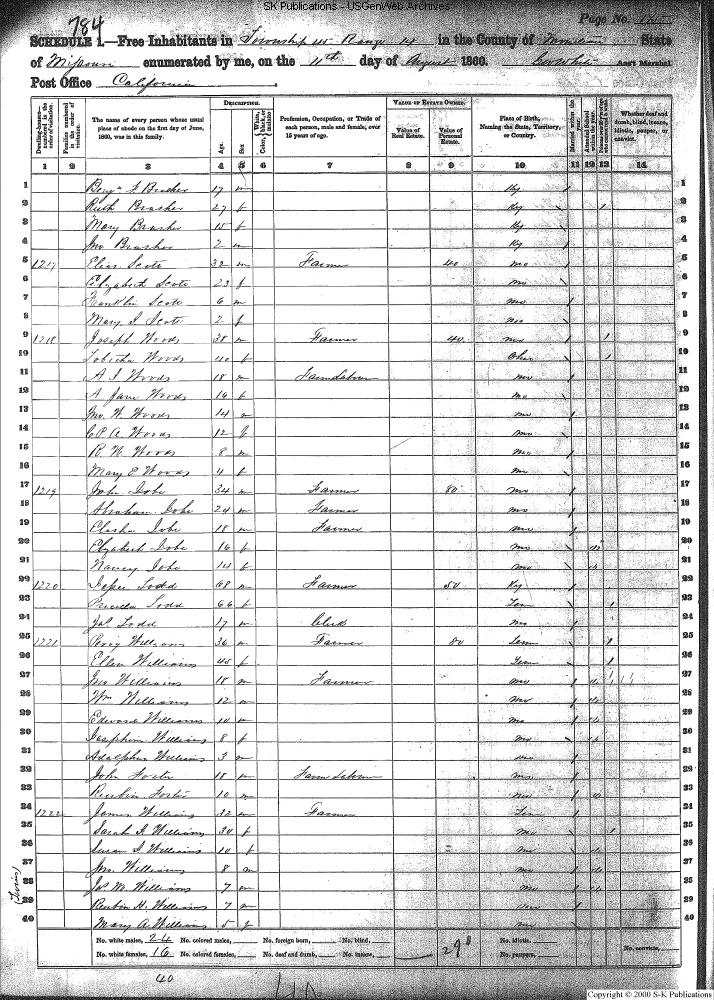 SK Publications - USGenWeb Archives
784
Page No.
SCHEDULE 1.—Free Inhabitants in Township 45 Range 14 in the County of Moniteau State
of Missouri enumerated by me, on the 11th day of August 1860. Ass't Marshal
Post Office California
Dwelling-houses—numbered in the order of visitation.
Families numbered in the order of visitation.
The name of every person whose usual place of abode on the first day of June, 1860, was in this family.
DESCRIPTION.
Age.
Sex
Color, White, black, or mulatto
Profession, Occupation, or Trade of each person, male and female, over 15 years of age.
VALUE OF ESTATE OWNED.
Value of Real Estate.
Value of Personal Estate.
Place of Birth, Naming the State, Territory, or Country.
Married within the year.
Attended School within the year.
Whether deaf and dumb, blind, insane, idiotic, pauper, or convict.
1 2 3 4 5 6 7 8 9 10 11 12 13 14
1 Benj F Brasher 17 m Ky / 1
2 Ruth Brasher 27 f Ky 1 2
3 Mary Brasher 15 f Ky 3
4 Jno Brasher 2 m Ky 4
5 1217 Elias Scott 32 m Farmer 40 Mo 5
6 Elizabeth Scott 23 f Mo 6
7 Franklin Scott 6 m Mo 7
8 Mary Scott 2 f Mo 8
9 1218 Joseph Woods 38 m Farmer 40 Mo 1 9
10 Woods 40 f Ohio 1 10
11 A J Woods 18 m Farm Labour Mo 11
12 A Jane Woods 16 f Mo 12
13 Jno. W. Woods 14 m Mo 13
14 A. Woods 12 f Mo 14
15 R. W Woods 8 m Mo 15
16 Mary E Woods 4 f Mo 16
17 1219 John Jobe 34 m Farmer 80 Mo 17
18 Abraham Jobe 24 m Farmer Mo 18
19 Elisha Jobe 18 m Farmer Mo 19
20 Elizabeth Jobe 16 f Mo 20
21 Nancy Jobe 14 f Mo 21
22 1220 Todd 68 m Farmer 50 Ky 22
23 Priscilla Todd 66 f Tenn 1 23
24 Jas. Todd 17 m Clerk Mo 24
25 1221 Perry Williams 36 m Farmer 80 Tenn 1 25
26 Ellen Williams 45 f Tenn 1 26
27 Jno Williams 18 m Farmer Mo 27
28 Wm Williams 12 m Mo 28
29 Edward Williams 10 m Mo 29
30 Josephine Williams 8 f Mo 30
31 Adolphus Williams 3 m Mo 31
32 John Foster 18 m Farm Labour Mo 32
33 Reubin Foster 10 m Mo 33
34 1222 James Williams 32 m Farmer Tenn 34
35 Sarah A Williams 30 f Mo 1 35
36 Susan Williams 10 f Mo 36
37 Jno. Williams 8 m Mo 37
38 Jas M. Williams 7 m Mo 38
Twins
39 Reubin H. Williams 7 m Mo 39
40 Mary A. Williams 5 f Mo 40
No. white males, 24 No. colored males, No. foreign born, No. blind, No. idiotic,
290
No. white females, 16 No. colored females, No. deaf and dumb, No. insane, No. paupers, No. convicts,
40
Copyright © 2000 S-K Publications